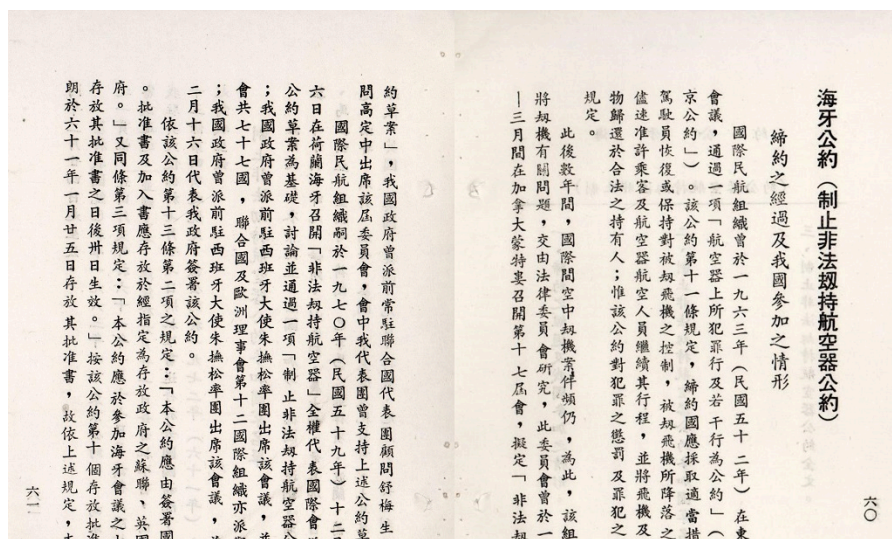 海牙公約（制止非法刼持航空器公約）
締約之經過及我國參加之情形
國際民航組織曾於一九六三年（民國五十二年）在東
會議，通過一項「航空器上所犯罪行及若干行為公約」（
京公約」）。該公約第十一條規定，締約國應採取適當措
駕駛員恢復或保持對被刼飛機之控制，被刼飛機所降落之
儘速准許乘客及航空器航空人員繼續其行程，並將飛機及
物歸還於合法之持有人；惟該公約對犯罪之懲罰及罪犯之
規定。
此後數年間，國際間空中刼機案件頻仍，為此，該組
將刼機有關問題，交由法律委員會研究，此委員會曾於一
—三月間在加拿大蒙特婁召開第十七屆會，擬定「非法刼
六〇
約草案」，我國政府曾派前常駐聯合國代表團顧問舒梅生
問高定中出席該屆委員會，會中我代表團曾支持上述公約草
國際民航組織嗣於一九七〇年（民國五十九年）十二月
六日在荷蘭海牙召開「非法刼持航空器」全權代表國際會
公約草案為基礎，討論並通過一項「制止非法刼持航空器公
；我國政府曾派前駐西班牙大使朱撫松率團出席該會議，並
會共七十七國，聯合國及歐洲理事會第十二國際組織亦派
；我國政府曾派前駐西班牙大使朱撫松率團出席該會議，
二月十六日代表我政府簽署該公約。
依該公約第十三條第二項之規定：「本公約應由簽署國
。批准書及加入書應存放於經指定為存放政府之蘇聯、英國
府。」又同條第三項規定：「本公約應於參加海牙會議之
存放其批准書之日後卅日生效。」按該公約第十個存放批准
朗於六十一年一月廿五日存放其批准書，故依上述規定，
六一